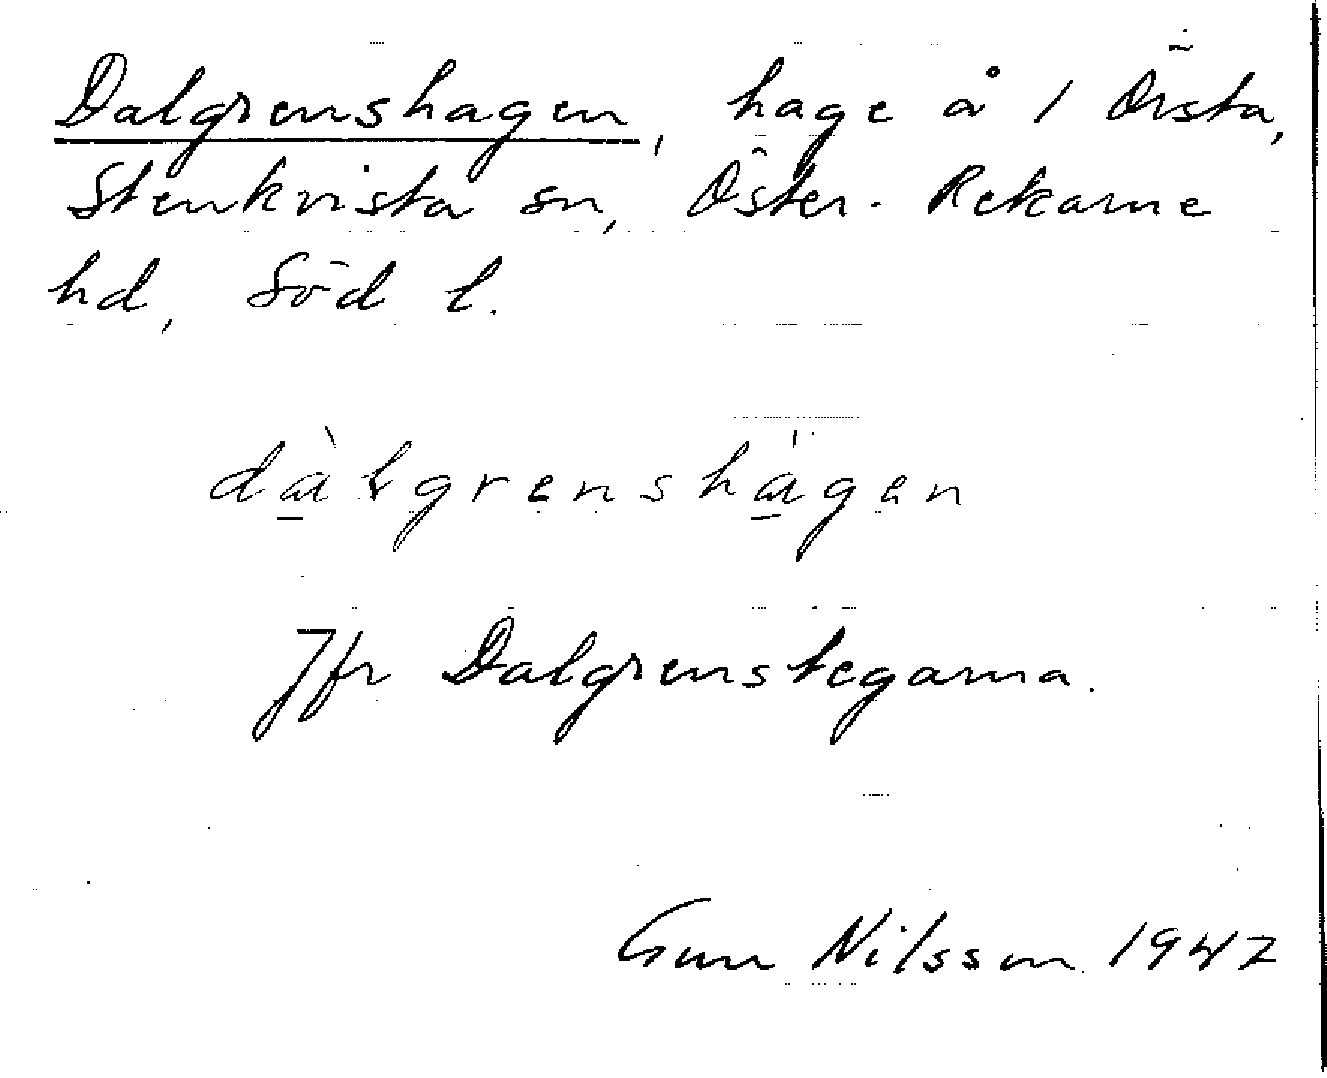 Dalgrenshagen, hage å 1 Örsta,
Stenkvista sn, Öster-Rekarne
hd, Söd l.
dàlgrenshágen
Jfr Dalgrenstegarna.
Gun Nilsson 1947